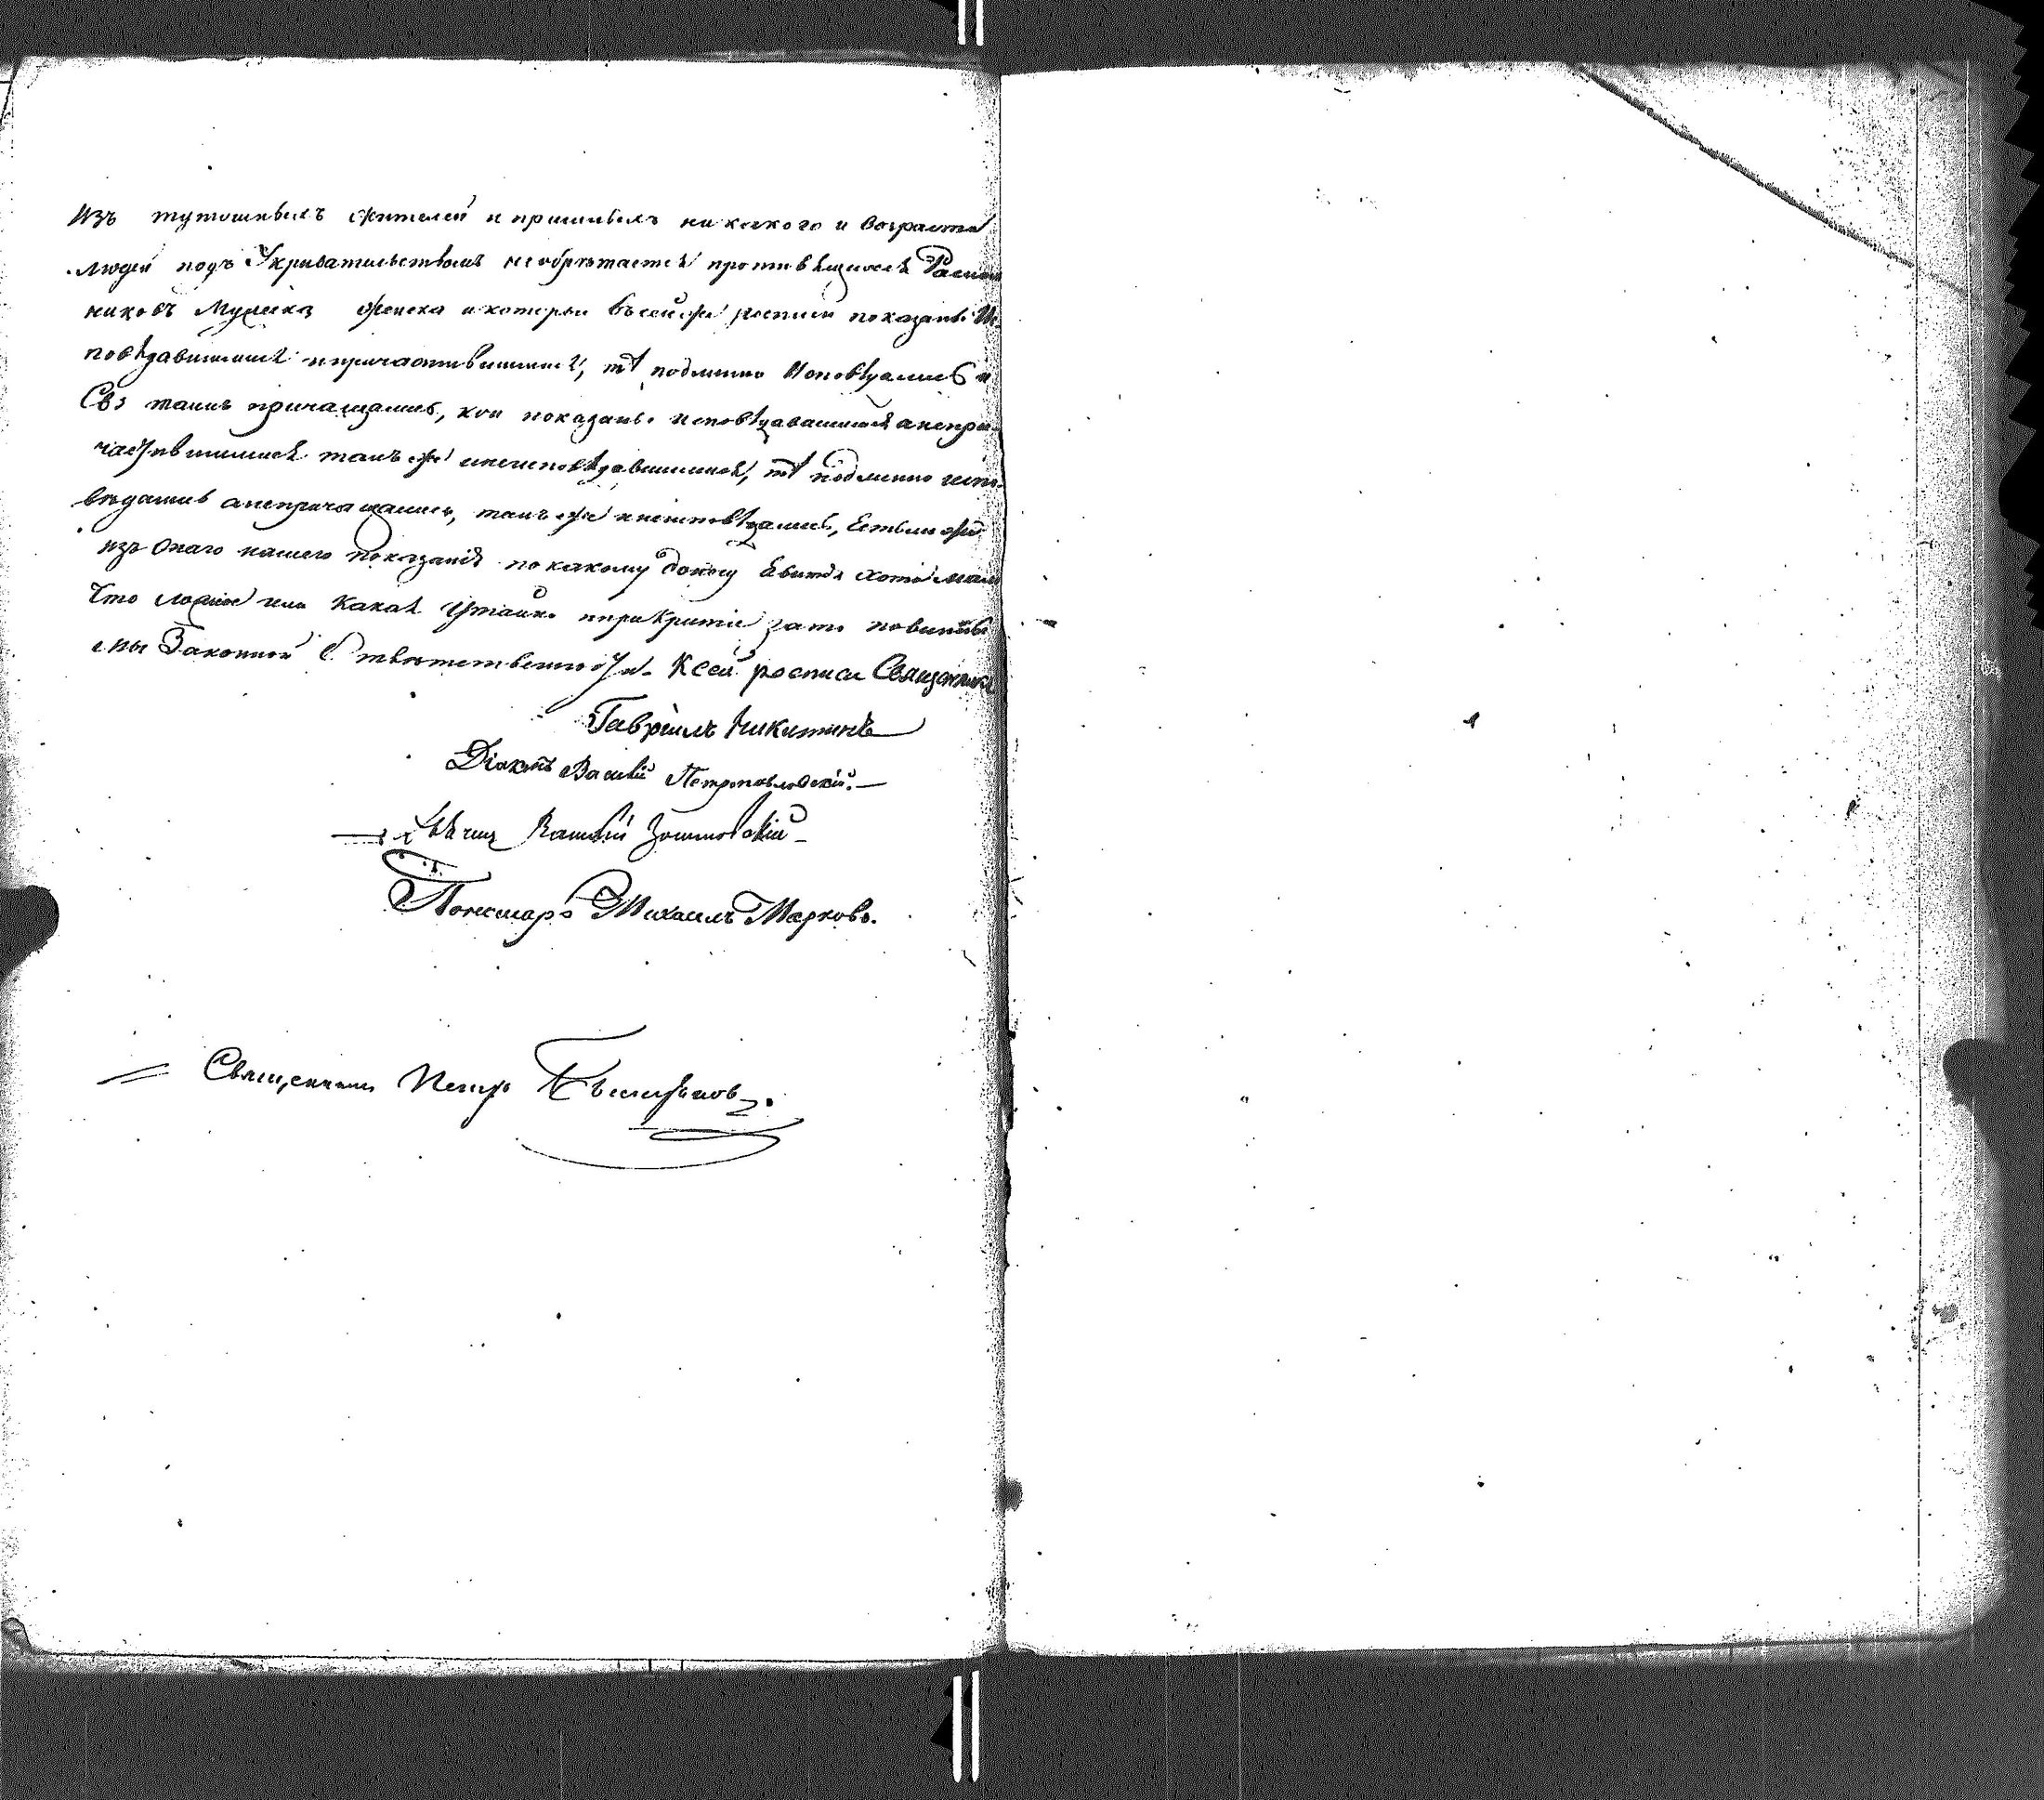 Изъ тутошныхъ жителей и пришлыхъ никакого и возраста
людей подъ Укривательствомъ необрѣтается противящихся Раскол
никовъ Мужеска женска и которыи въ сей же росписи показаны Ис
повѣдавшимися и причастившимися, тѣ подлинно Исповѣдались и
Свз таинъ причащались, кои показаны исповѣдавшимися а непри
частившимися такъ же и неисповѣдавшимися, тѣ подлинно испо
вѣдались а непричащались, такъ же и неисповѣдались, Естьли же
изъ Онаго нашего показанія по какому доносу Явится хотя мало
Что ложное или Какая Утайка и прикрытіе зато повинны
мы Законной Отвѣтственности. К сей росписи Священникъ
Гавріилъ Никитинъ
Діаконъ Василій Петропавловскій.
Василій
Пономаръ Михаилъ Марковъ.
Священникъ Петръ